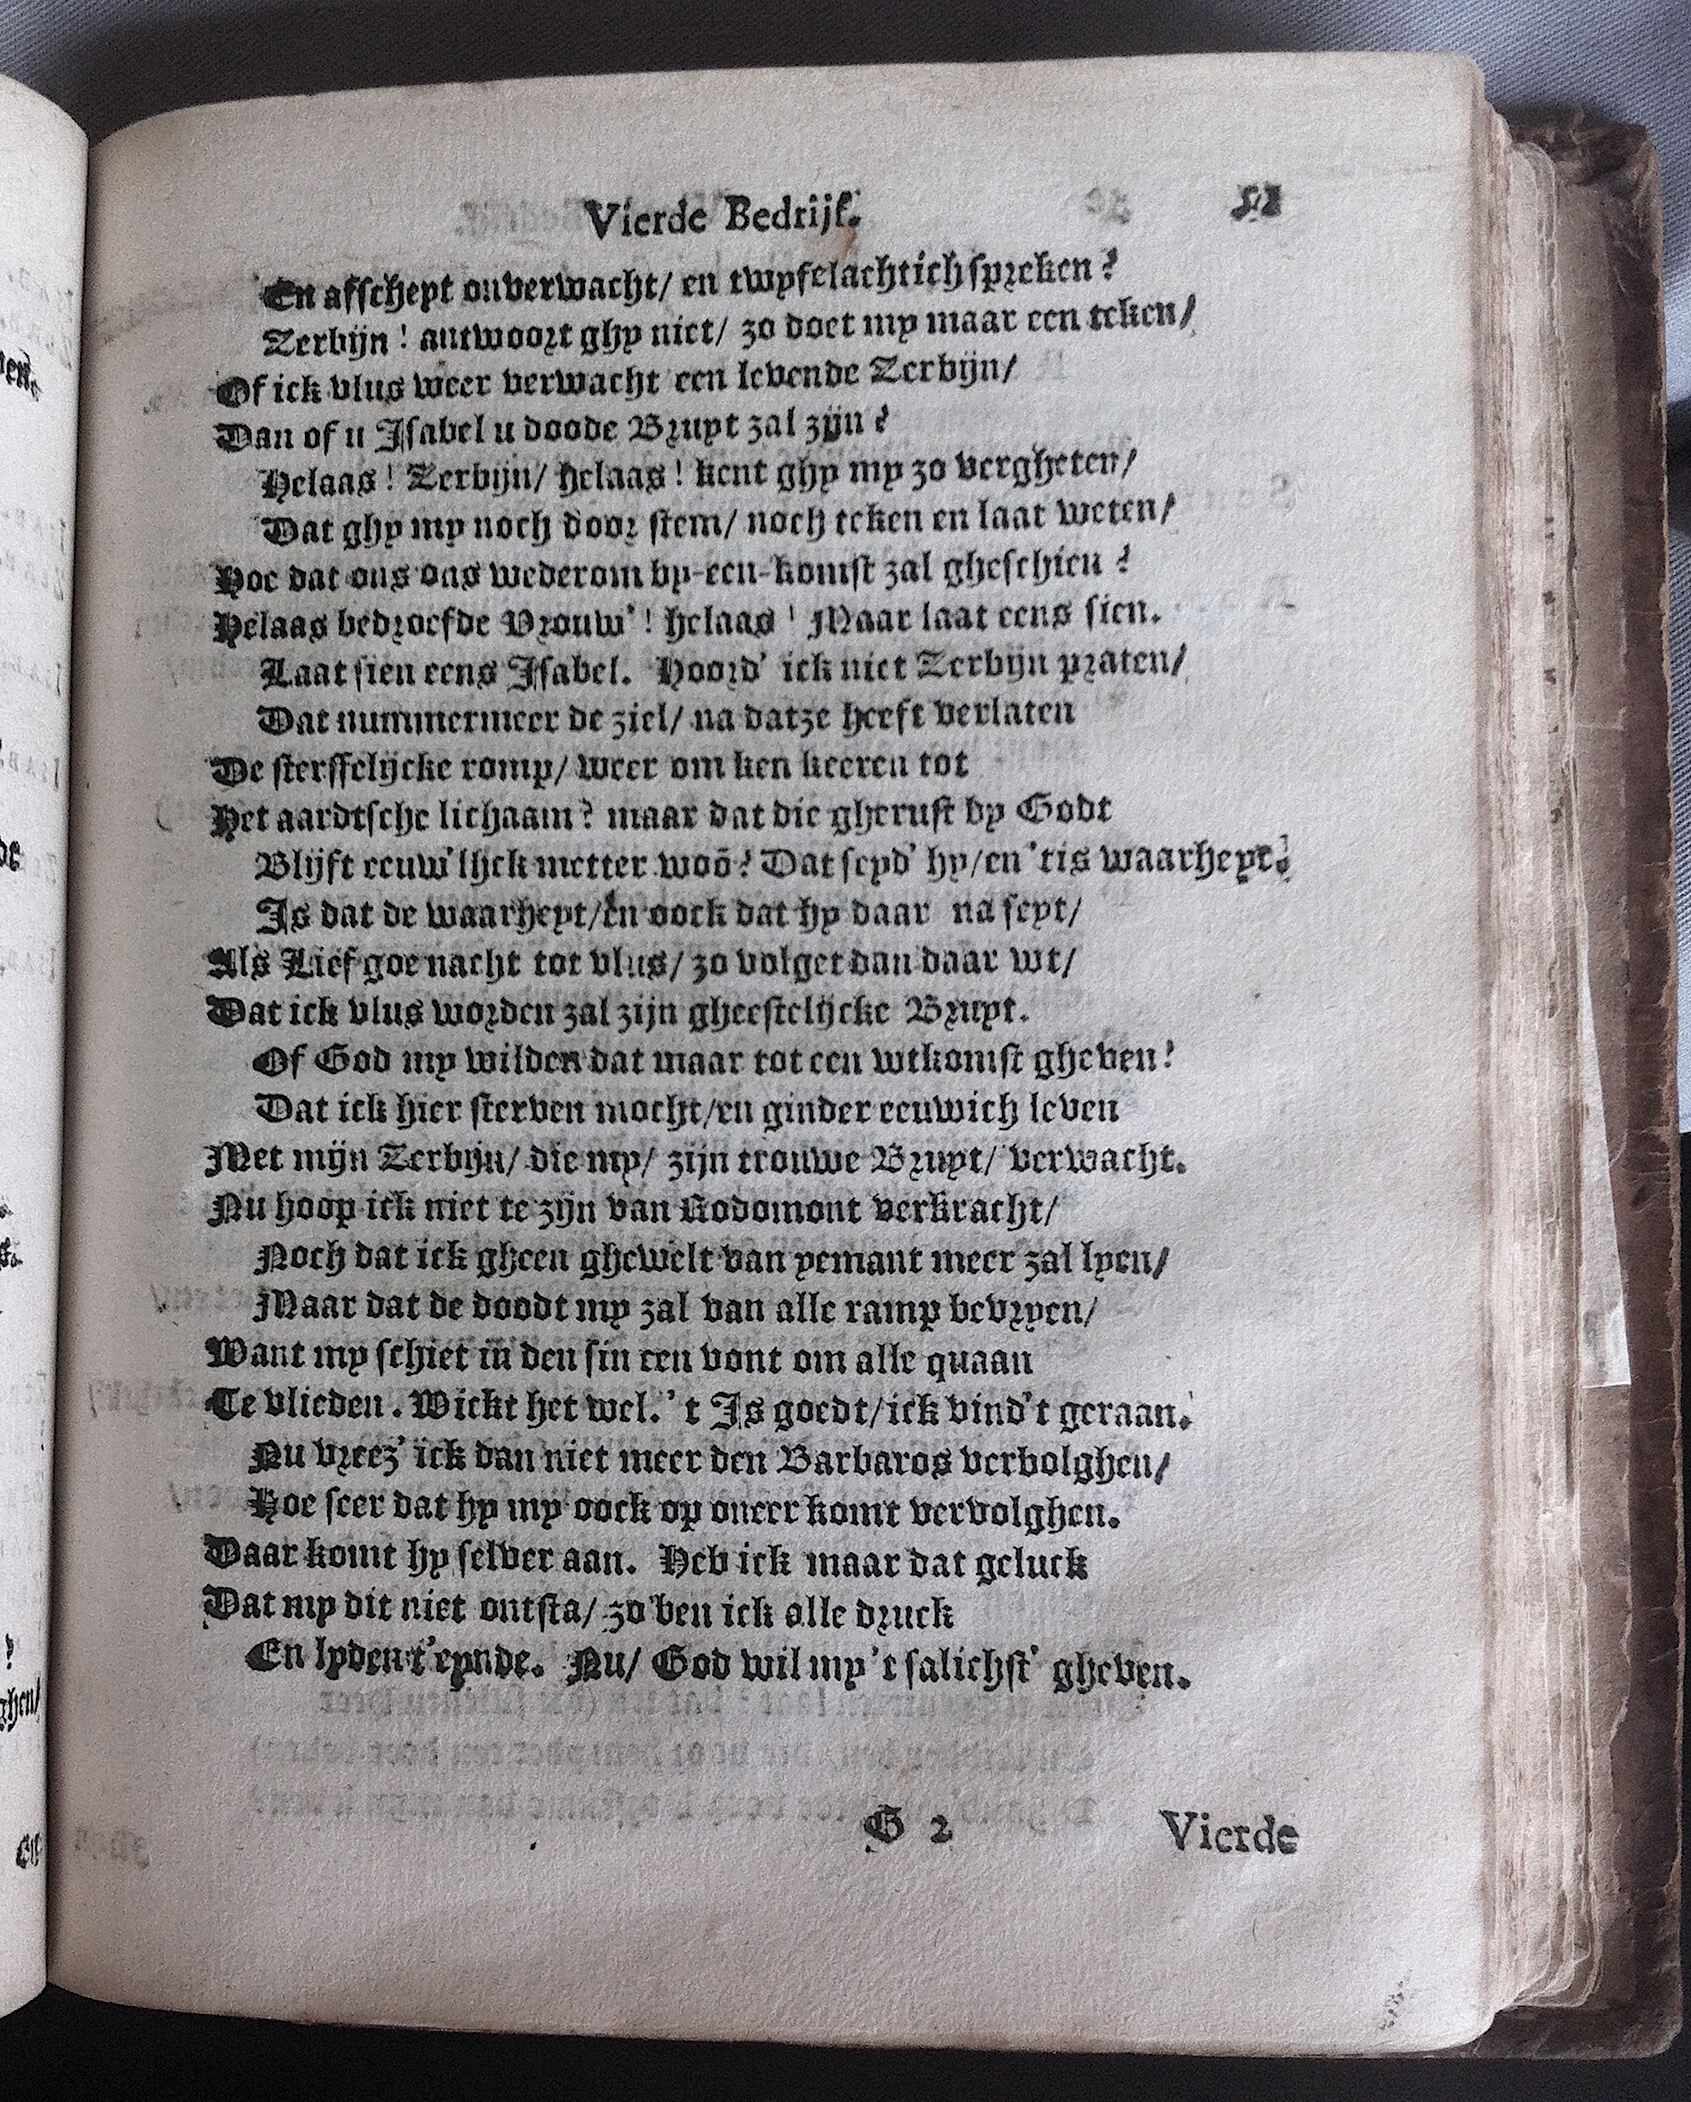 Vierde Bedrijf. 51
En afscheyt onverwacht/ en twyfelachtich spreken?
Zerbijn! antwoort ghy niet/ zo doet my maar een teken/
Of ick vlus weer verwacht een levende Zerbijn/
Dan of u Isabel u doode Bruyt zal zijn?
Helaas! Zerbijn/ helaas! kent ghy my zo vergheten/
Dat ghy my noch door stem/ noch teken en laat weten/
Hoe dat ons ons wederom by-een-komst zal gheschien?
Helaas bedroefde Vrouw'! helaas! Maar laat eens sien.
Laat sien eens Isabel. Hoord' ick niet Zerbijn praten/
Dat nummermeer de ziel/ na datze heeft verlaten
De sterffelijcke romp/ weer om ken keeren tot
Het aardtsche lichaam? maar dat die gherust by Godt
Blijft eeuw'lijck metter woō? Dat seyd' hy/en 'tis waarheyt.
Is dat de waarheyt/En oock dat hy daar na seyt/
Als Lief goe nacht tot vlus/ zo volget dan daar wt/
Dat ick vlus worden zal zijn gheestelijcke Bruyt.
Of God my wilden dat maar tot een wtkomst gheven!
Dat ick hier sterven mocht/en ginder eeuwich leven
Met mijn Zerbijn/ die my/ zijn trouwe Bruyt/ verwacht.
Nu hoop ick niet te zijn van Rodomont verkracht/
Noch dat ick gheen ghewelt van yemant meer zal lyen/
Maar dat de doodt my zal van alle ramp bevryen/
Want my schiet in den sin een vont om alle quaan
Te vlieden. Wickt het wel. 't Is goedt/ick vind't geraan.
Nu vreez' ick dan niet meer den Barbaros verbolghen/
Hoe seer dat hy my oock op oneer komt vervolghen.
Daar komt hy selver aan. Heb ick maar dat geluck
Dat my dit niet ontsta/ zo ben ick alle druck
En lyden t'eynde. Nu/ God wil my 't salichst' gheven.
G 2 Vierde